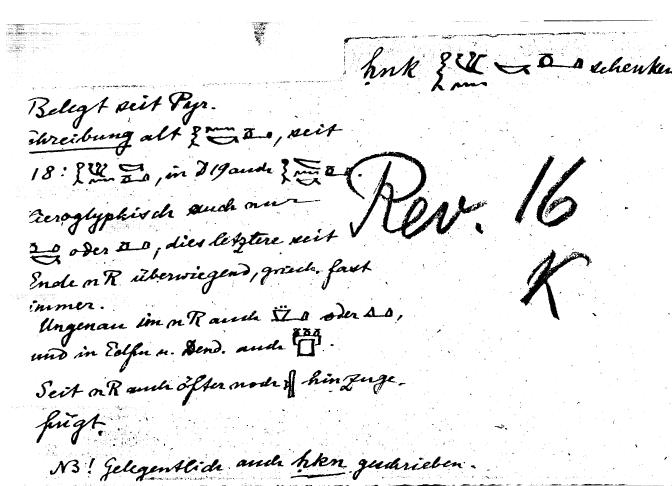 ḥnk schenken
Belegt seit Pyr.
Schreibung alt , seit
18: , in D19 auch .
hieroglyphisch auch nur
oder , dies letztere seit
Ende nR überwiegend, griech. fast
immer.
Ungenau im nR auch oder ,
und in Edfu u. Dend. auch .
Seit nR auch öfter noch hinzuge-
fügt.
NB! Gelegentlich auch ḥkn geschrieben.
Rev. 16
K